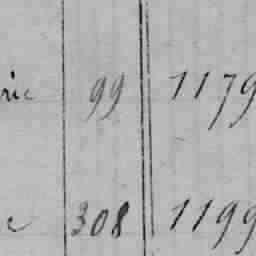 ric 99 1179
e 308 1199